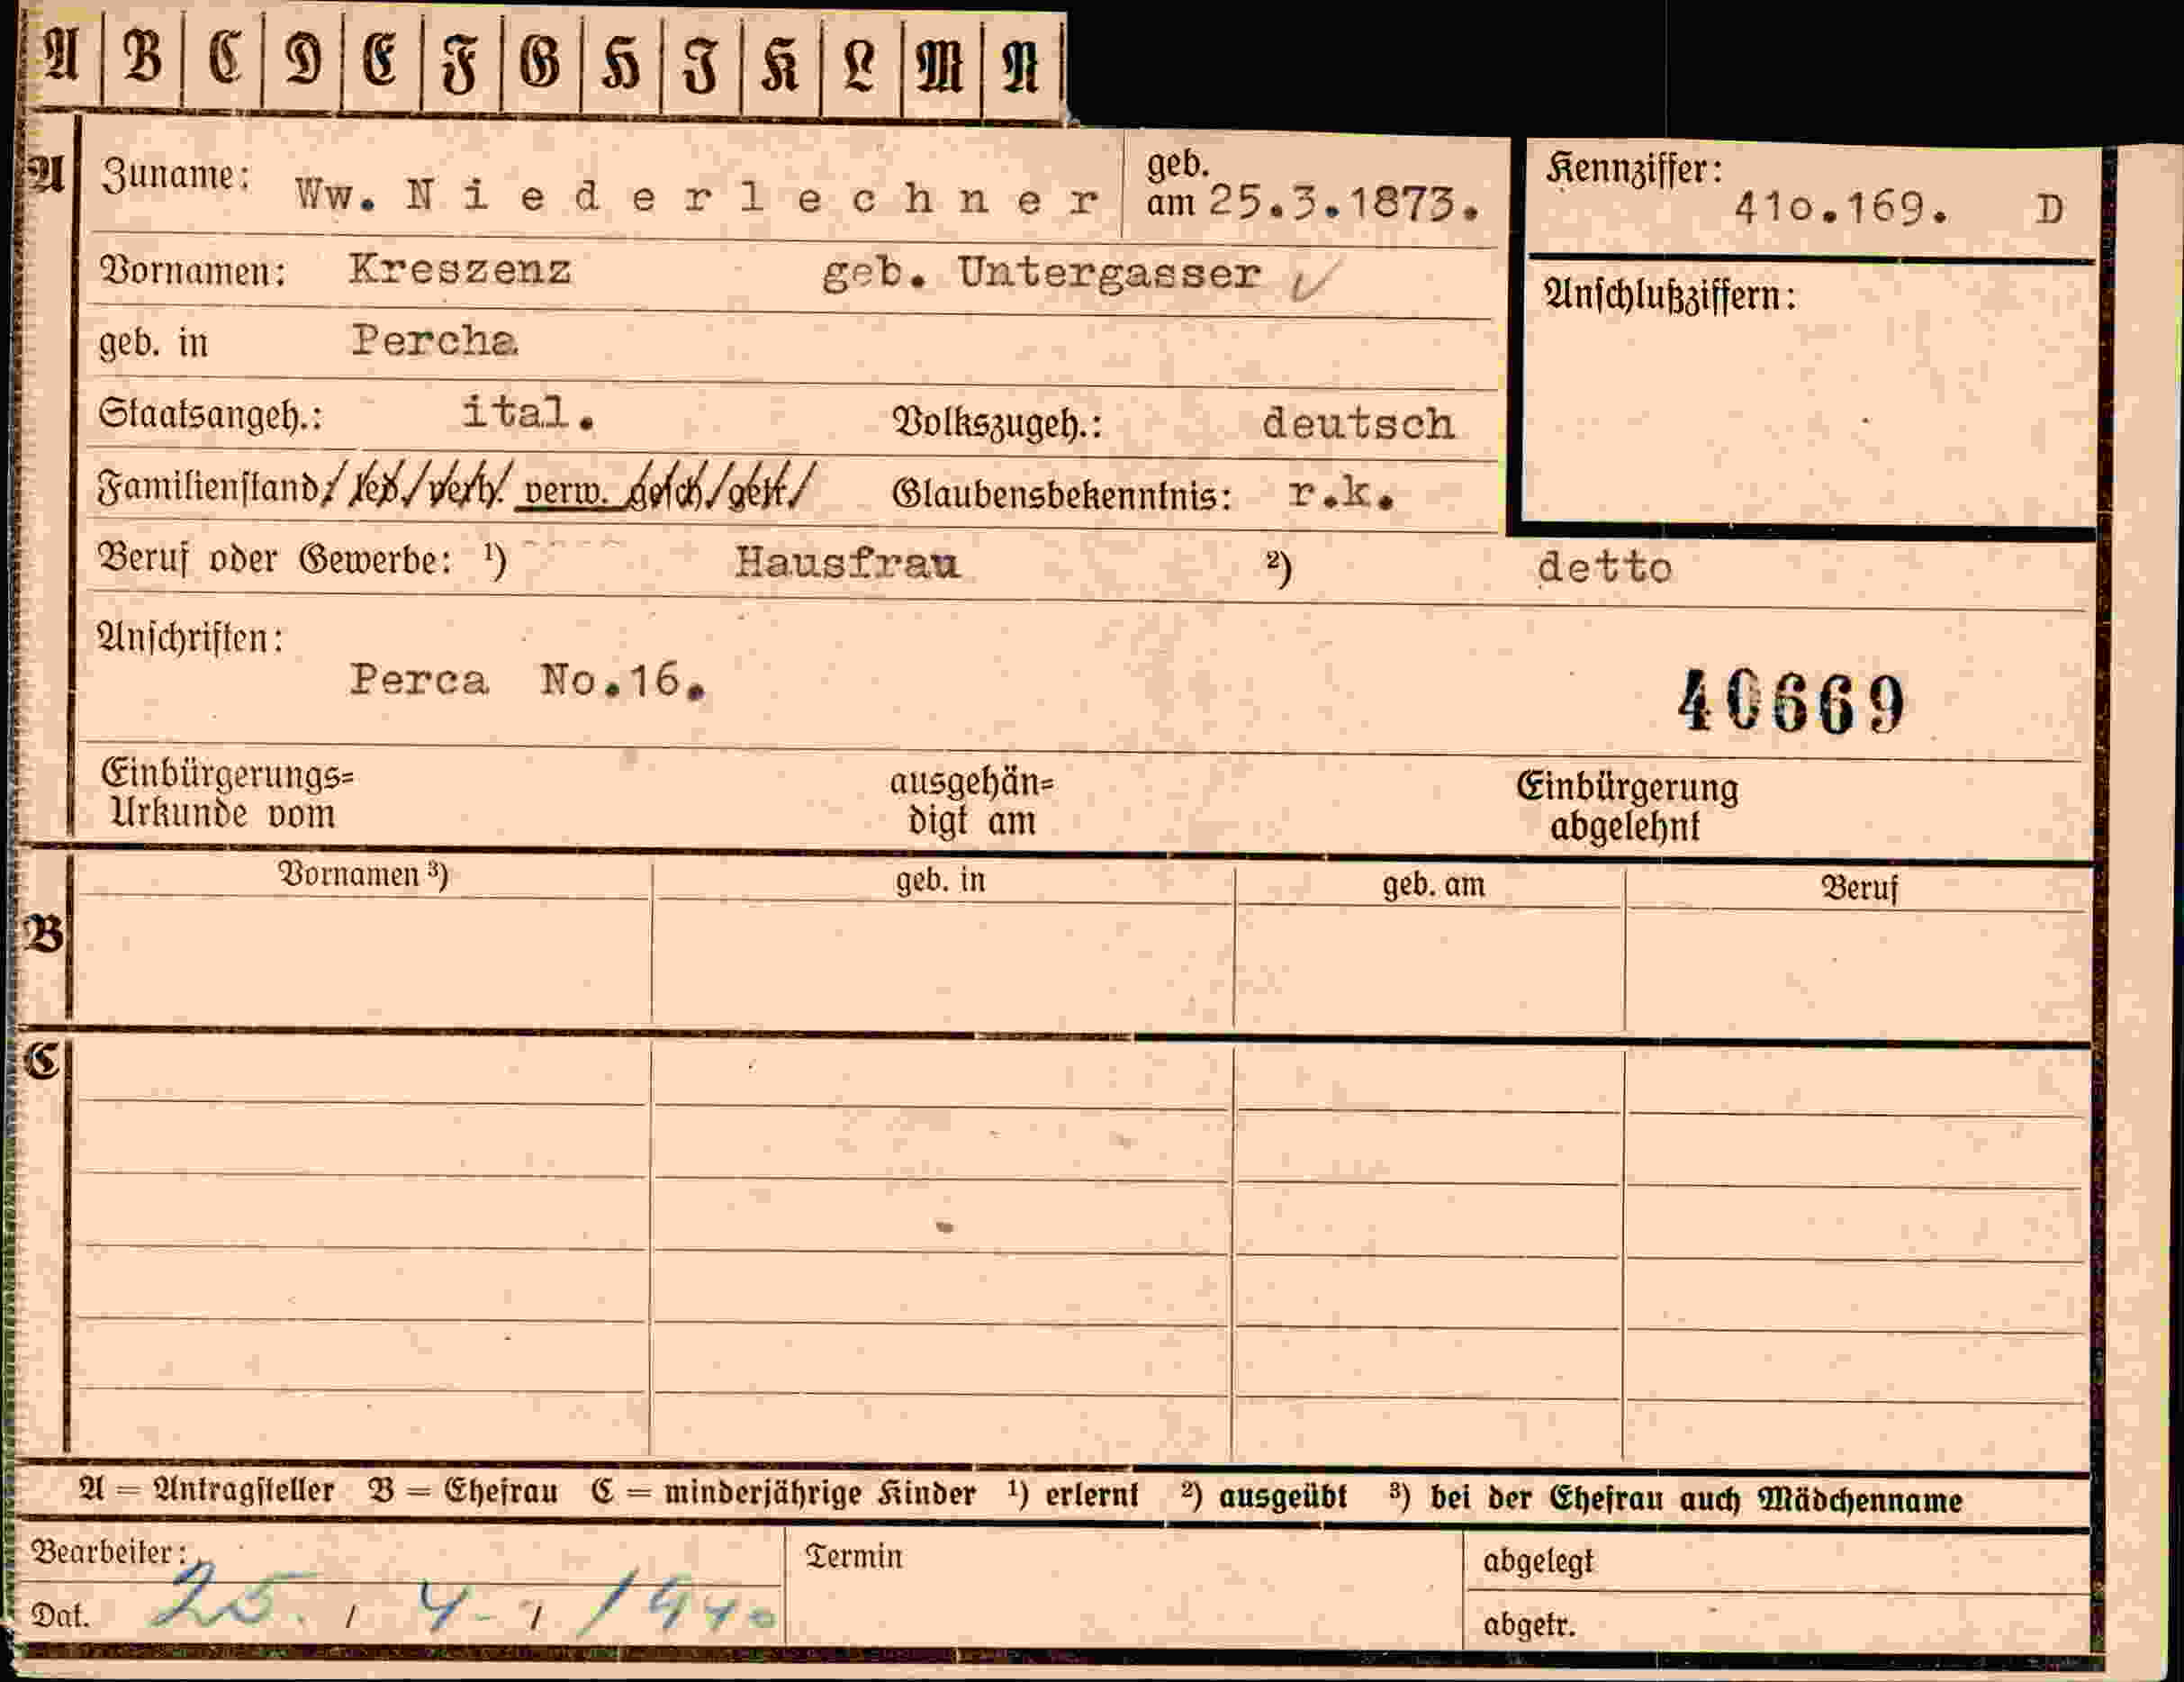 A B C D E F G H I K L M N
A Zuname: Ww. N i e d e r l e c h n e r geb. am 25.3.1873. Kennziffer: 41o.169. D
Vornamen: Kreszenz geb. Untergasser Anschlußziffern:
geb. in Percha
Staatsangeh.: ital. Volkszugeh.: deutsch
Familienstand/ led./verh. verw. gesch./getr./ Glaubensbekenntnis: r.k.
Beruf oder Gewerbe: ¹) Hausfrau ²) detto
Anschriften:
Perca No.16. 40669
Einbürgerungs= ausgehän= Einbürgerung
Urkunde vom digt am abgelehnt
Vornamen ³) geb. in geb. am Beruf
B
C
A = Antragsteller B = Ehefrau C = minderjährige Kinder ¹) erlernt ²) ausgeübt ³) bei der Ehefrau auch Mädchenname
Bearbeiter: Termin abgelegt
Dat. 25. / 4 - / 1940 abgetr.